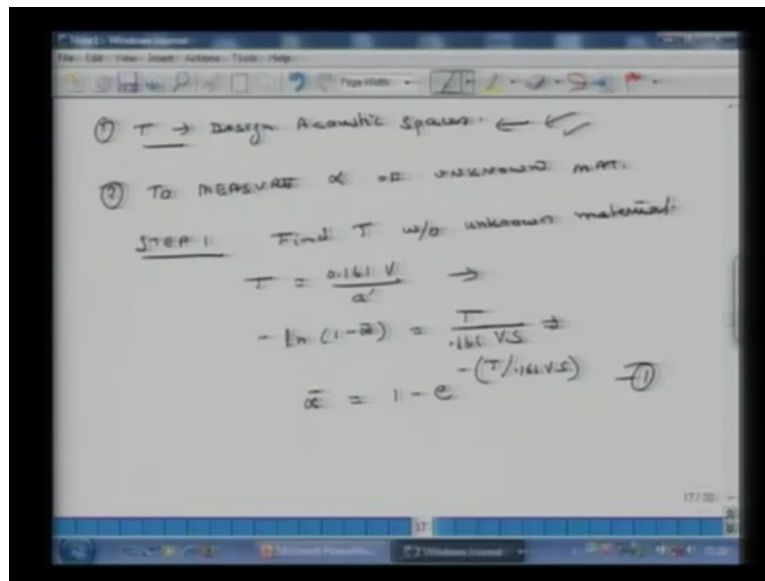 Note1 - Windows Journal
File Edit View Insert Actions Tools Help
Page Width
① T → Design Acoustic Spaces. ←
② TO MEASURE α OF UNKNOWN MAT.
STEP 1 Find T w/o unknown material.
T = 0.161 V / a' →
- ln (1-ᾱ) = T / .161 V.S ⇒
ᾱ = 1 - e^-(T/.161 V.S) - ①
17
2 Windows Journal